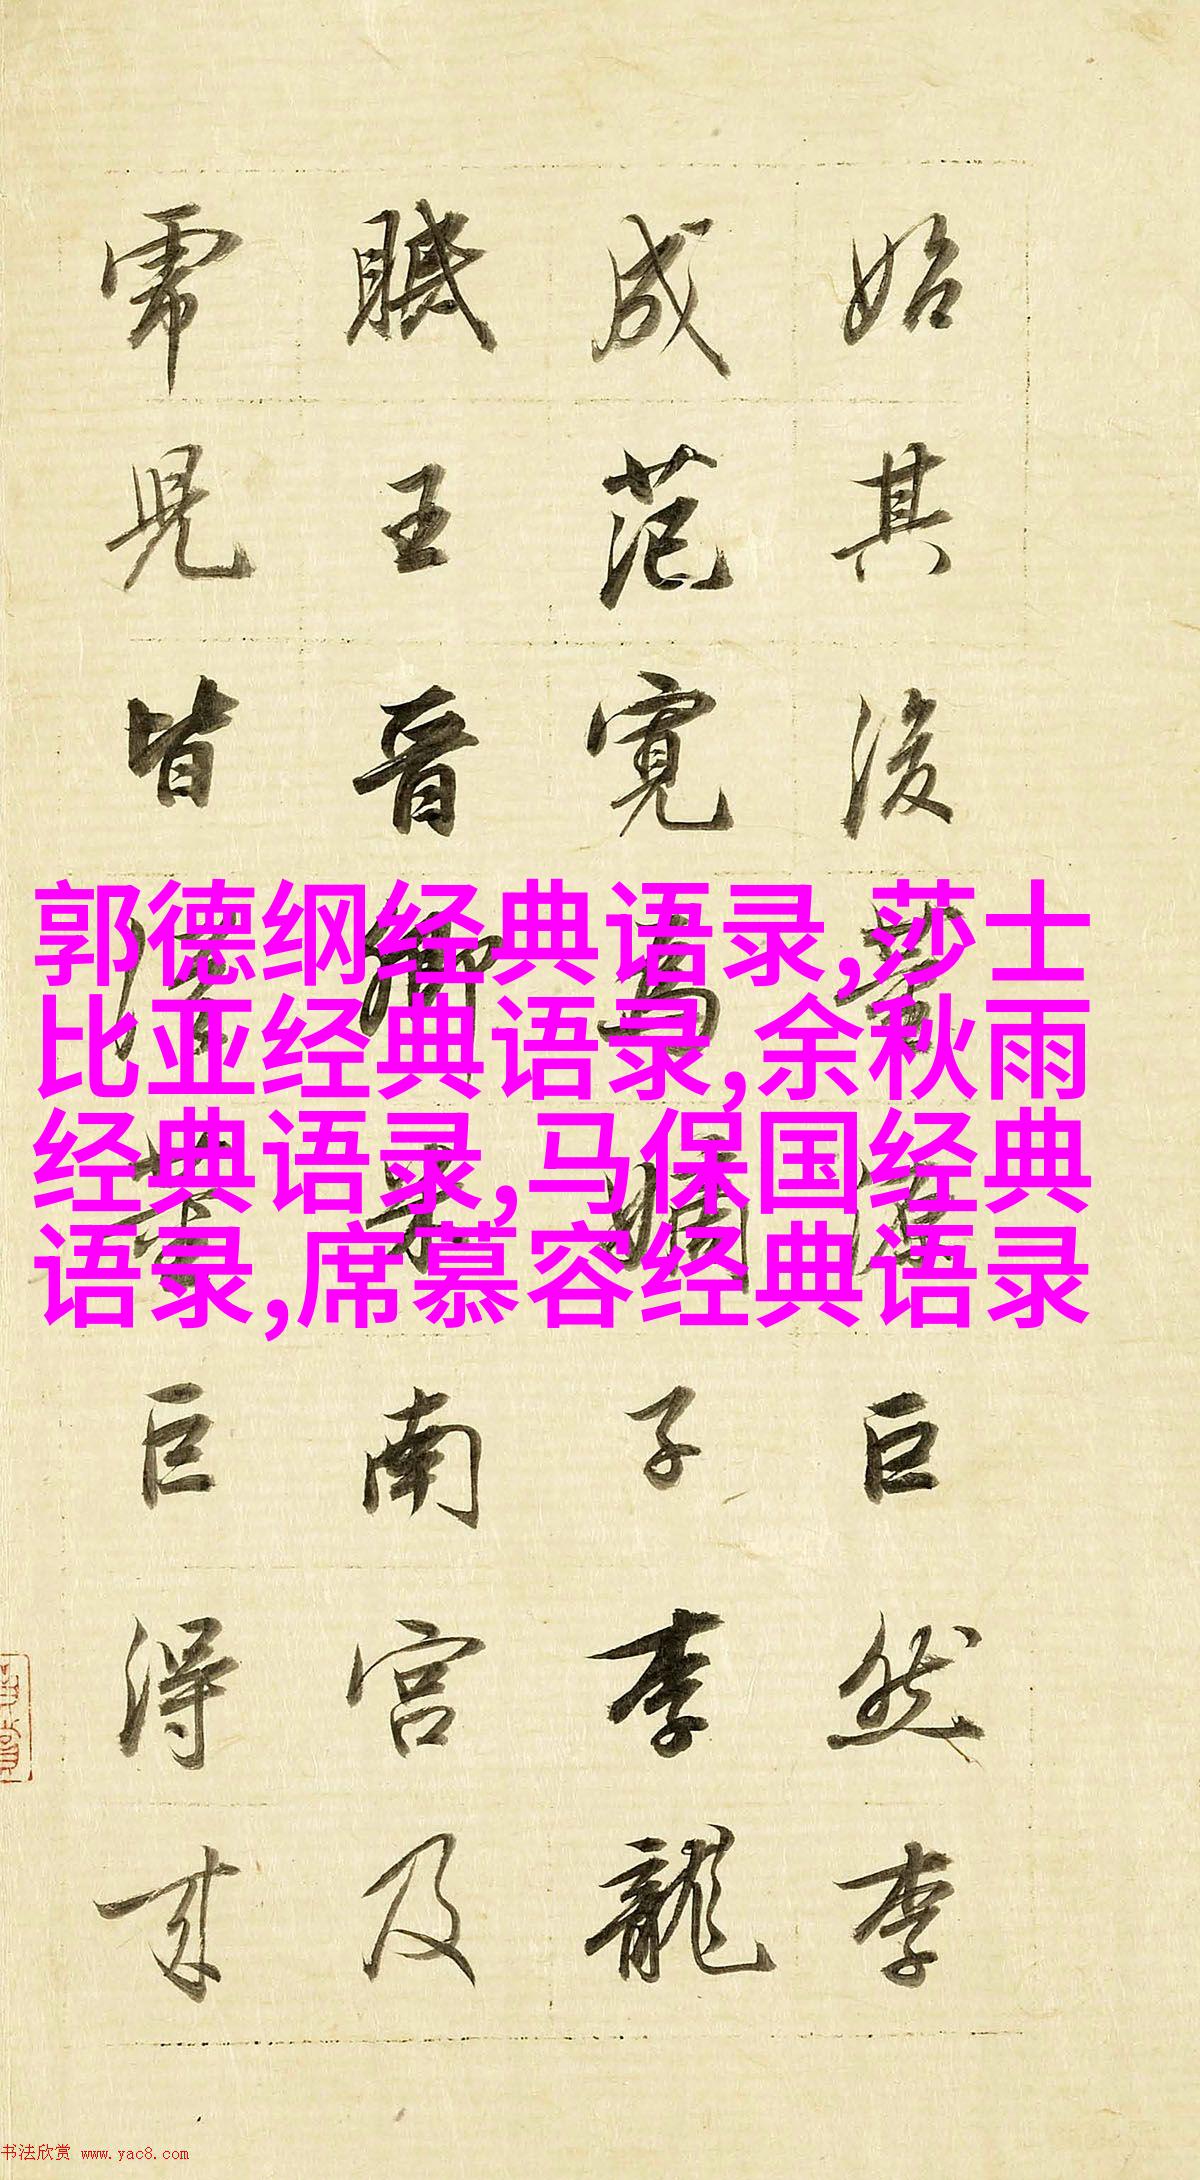 始其後董源巨然李
成范寬為嫡子李龍
眠王晉卿米南宮及
虎兒皆從董巨得来
郭德纲经典语录,莎士
比亚经典语录,余秋雨
经典语录,马保国经典
语录,席慕容经典语录
书法欣赏 www.yac8.com